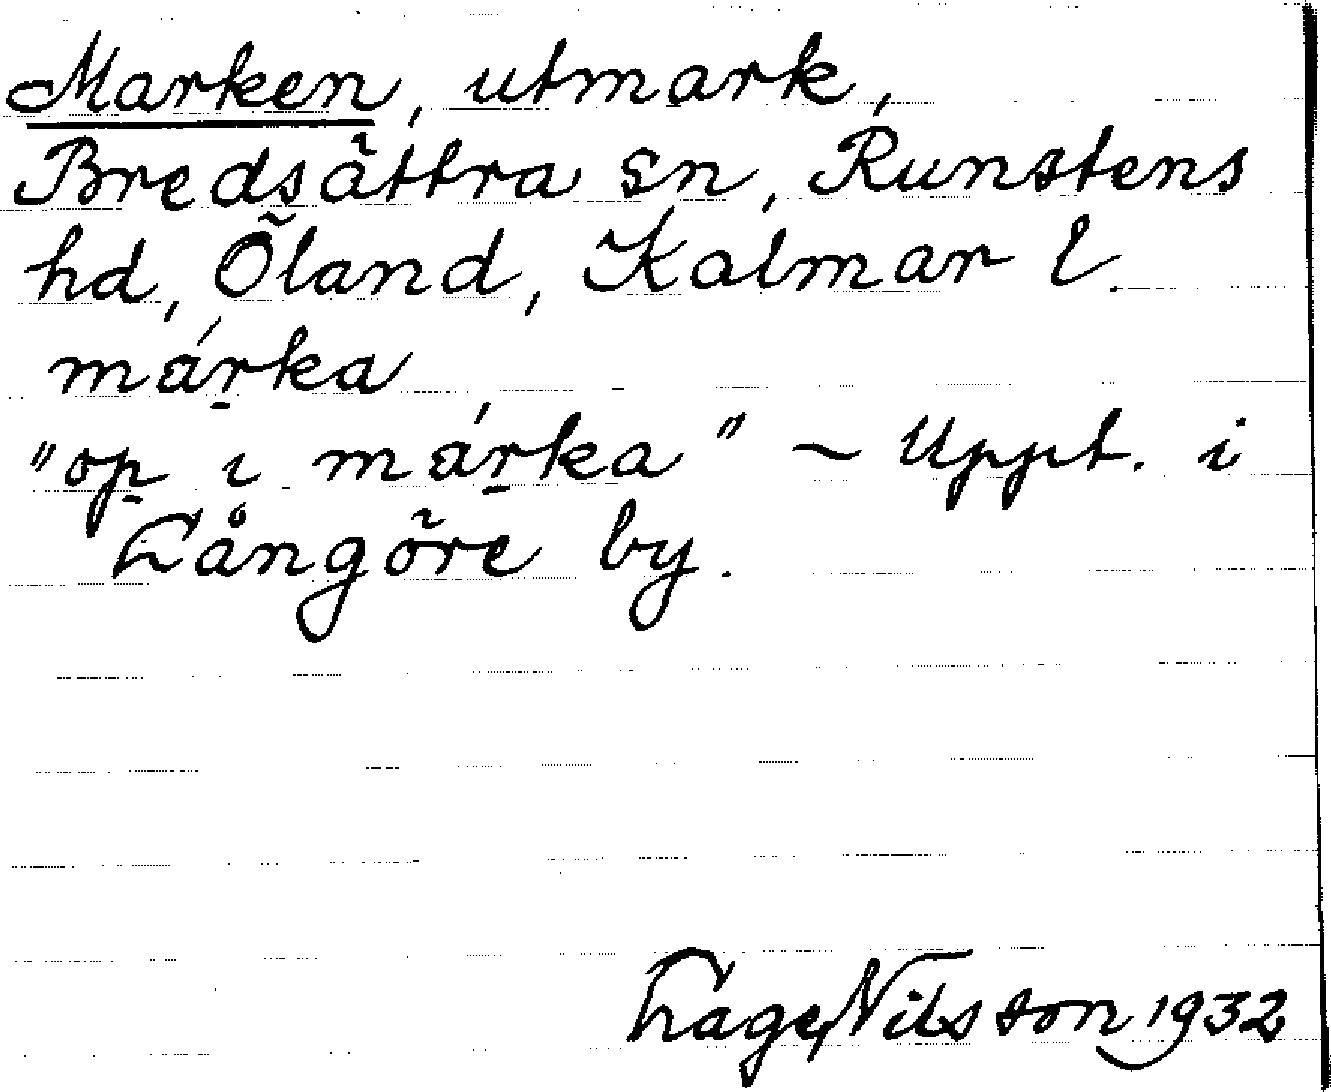 Marken, utmark,
Bredsättra sn, Runstens
hd, Öland, Kalmar l.
márka
"op i márka" ~ Uppt. i
Långöre by.
Lage Nilsson 1932